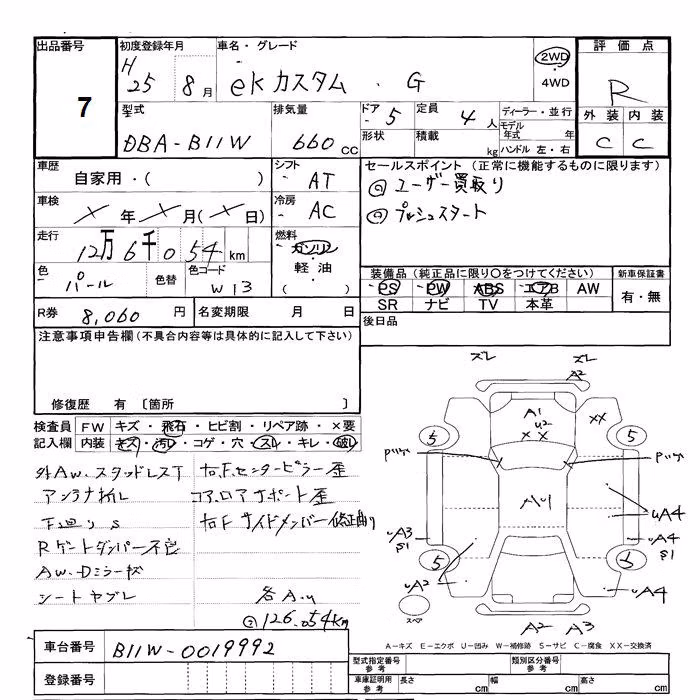 出品番号 7
初度登録年月 H25 8月
車名・グレード ekカスタム ・ G
2WD ・ 4WD
評価点 R
外装 内装
C C
型式 DBA-B11W
排気量 660 CC
ドア 5 定員 4 人
形状 積載 kg
ディーラー・並行
モデル年式 年
ハンドル 左・右
車歴 自家用・( )
シフト AT
車検 × 年 × 月(× 日)
冷房 AC
走行 12万6千054 km
燃料 ガソリン・軽油・( )
色 パール 色替 色コード W13
R券 8,060 円 名変期限 月 日
セールスポイント (正常に機能するものに限ります)
ユーザー買取り
プッシュスタート
装備品 (純正品に限り〇をつけてください) 新車保証書
PS PW ABS エアB AW 有・無
SR ナビ TV 本革
後日品
注意事項申告欄(不具合内容等は具体的に記入して下さい)
修復歴 有 〔箇所 〕
検査員記入欄
FW キズ・飛石・ヒビ割・リペア跡・×要
内装 キズ・汚レ・コゲ・穴・スレ・キレ・破レ
外AW・スタッドレスT
アンテナ
下廻りS
Rゲートダンパー不良
AW・Dミラーキズ
シートヤブレ
右Fセンターピラー歪
コアロアサポート歪
右Fサイドメンバー修正曲り
各A.U
126,054km
ズレ ズレ
A2
A1
U2
×× ××
5 5
5 5
AU
UA3
S1
UA2
UA4
UA4
S1
UA4
A2 A3
スペア
A-キズ E-エクボ U-凹み W-補修跡 S-サビ C-腐食 XX-交換済
車台番号 B11W-0019992
登録番号
型式指定番号 参考 類別区分番号 参考
車庫証明用 参考 長さ cm 幅 cm 高さ cm